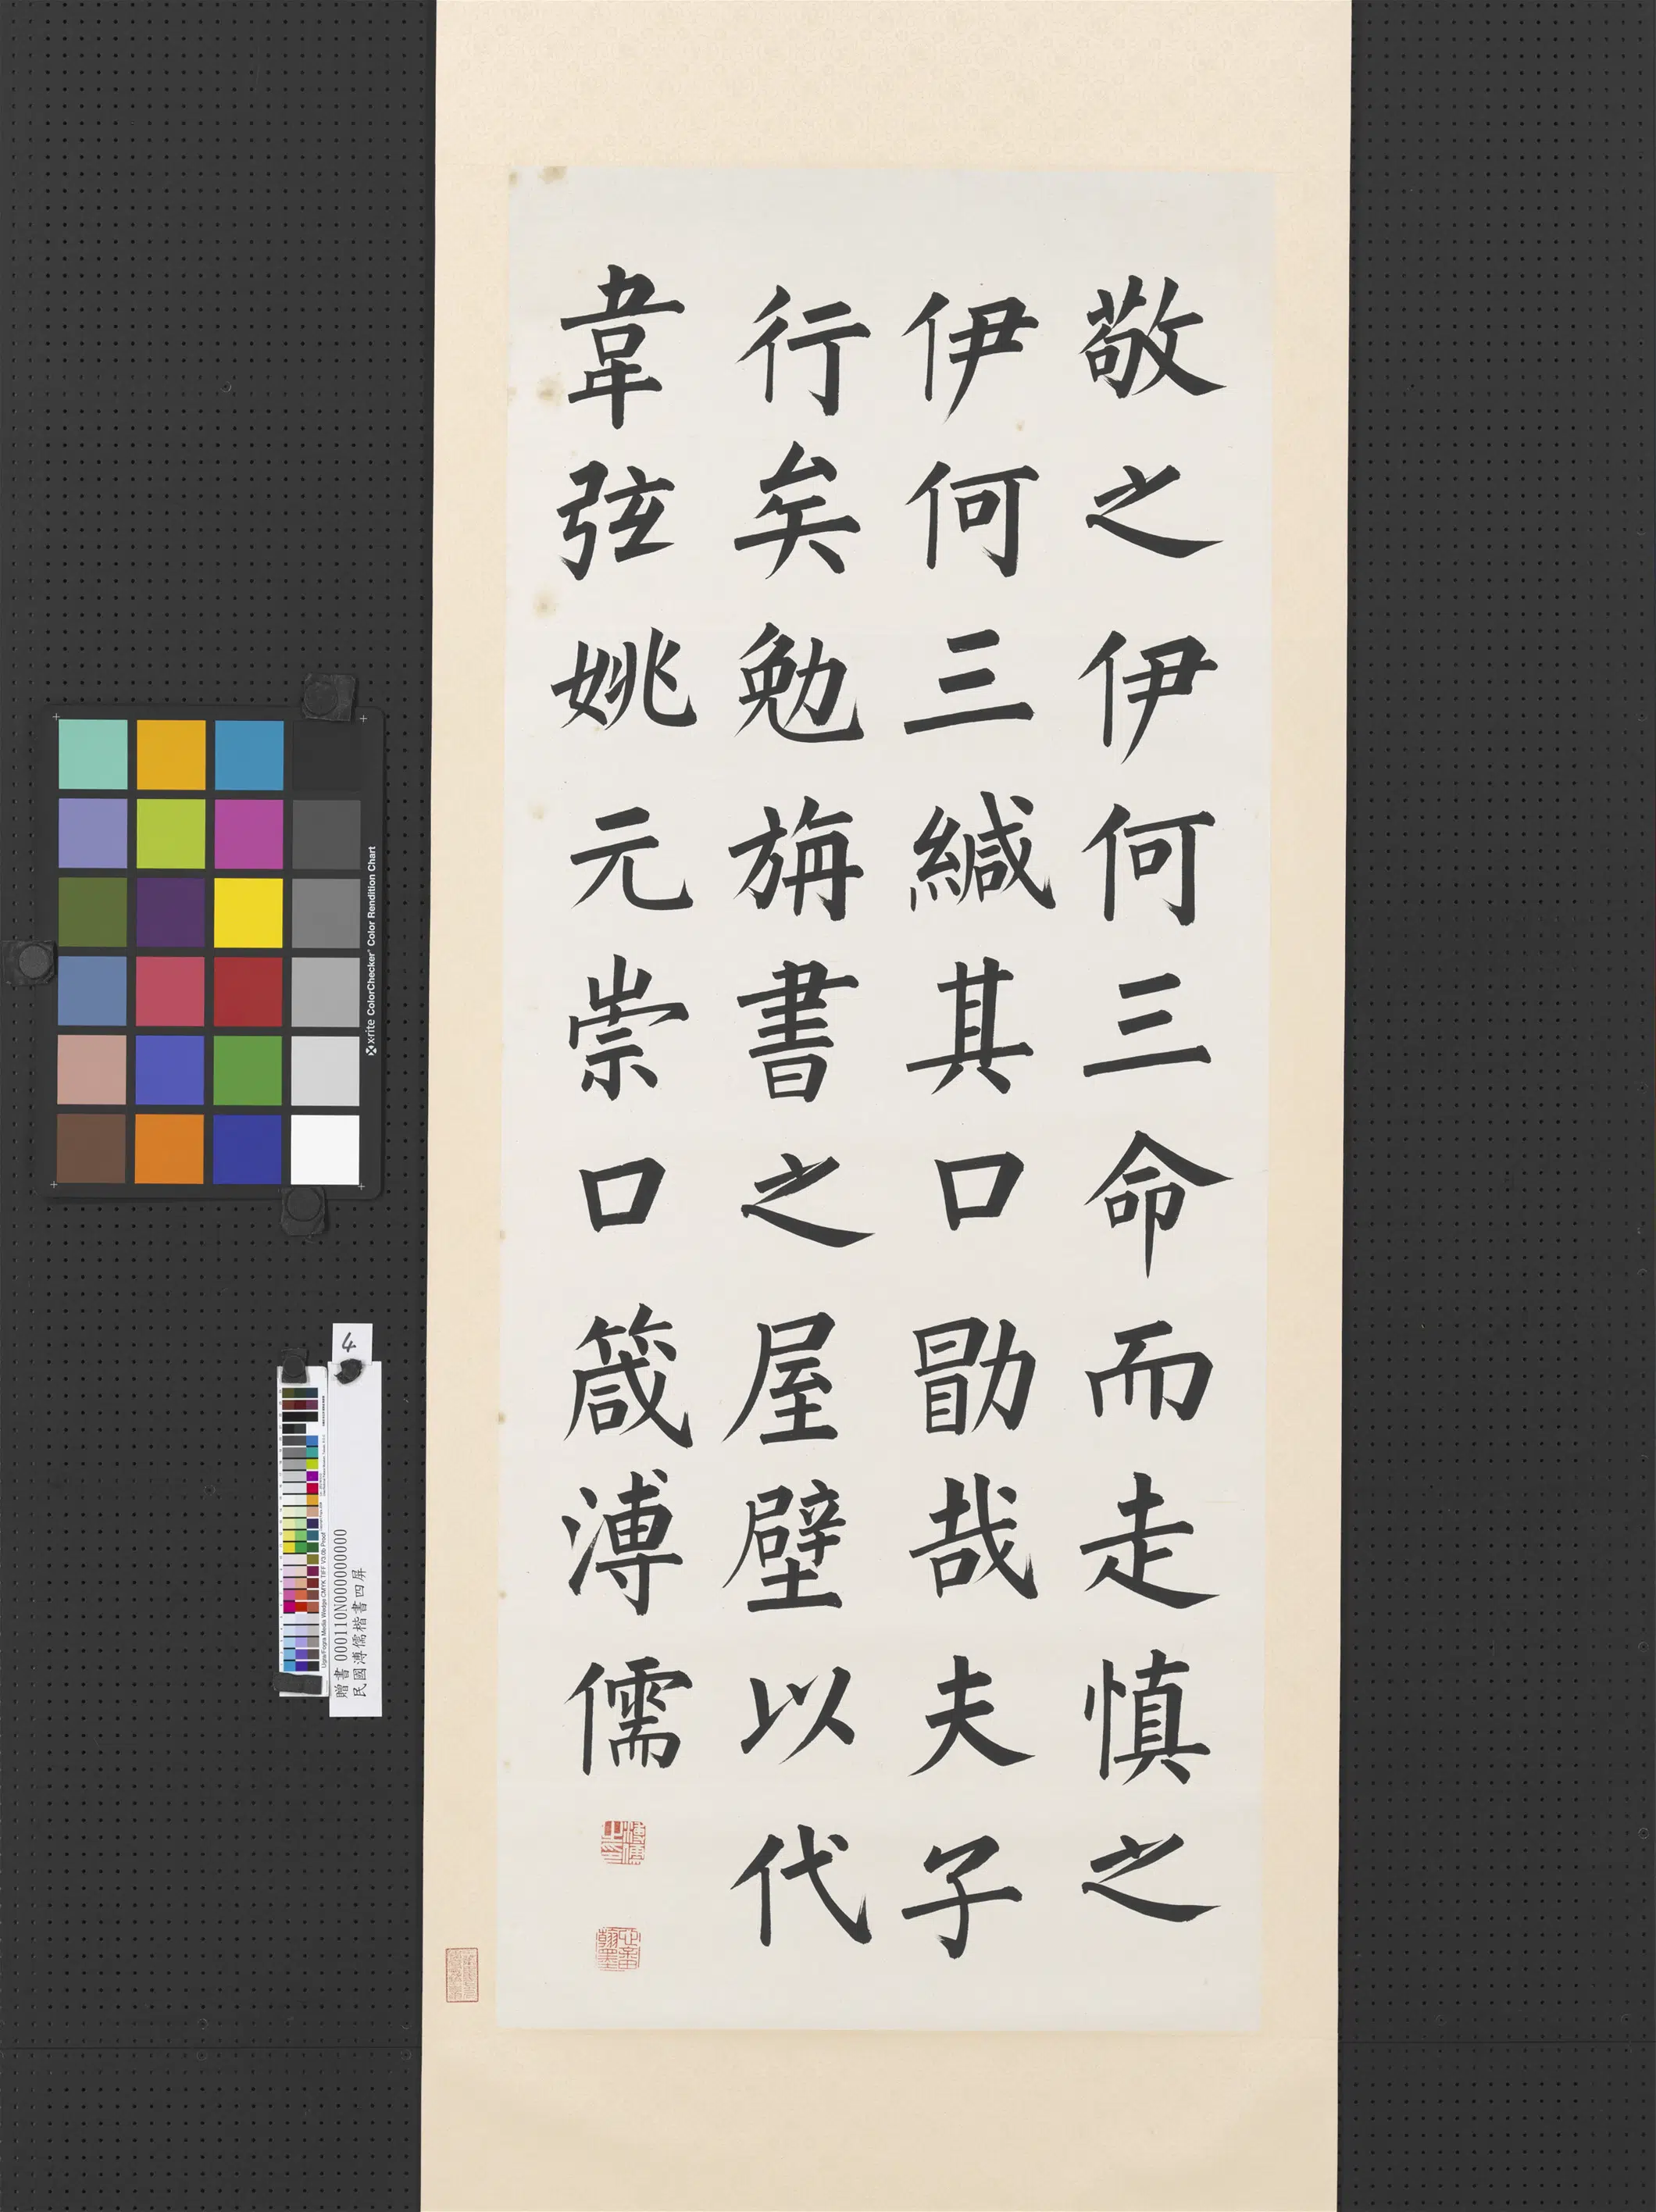 敬之伊何三命而走慎之
伊何三緘其口勖哉夫子
行矣勉旃書之屋壁以代
韋弦姚元崇口箴溥儒
溥儒之印
x-rite ColorChecker Color Rendition Chart
4
贈書 000110N000000000
民國溥儒楷書四屏